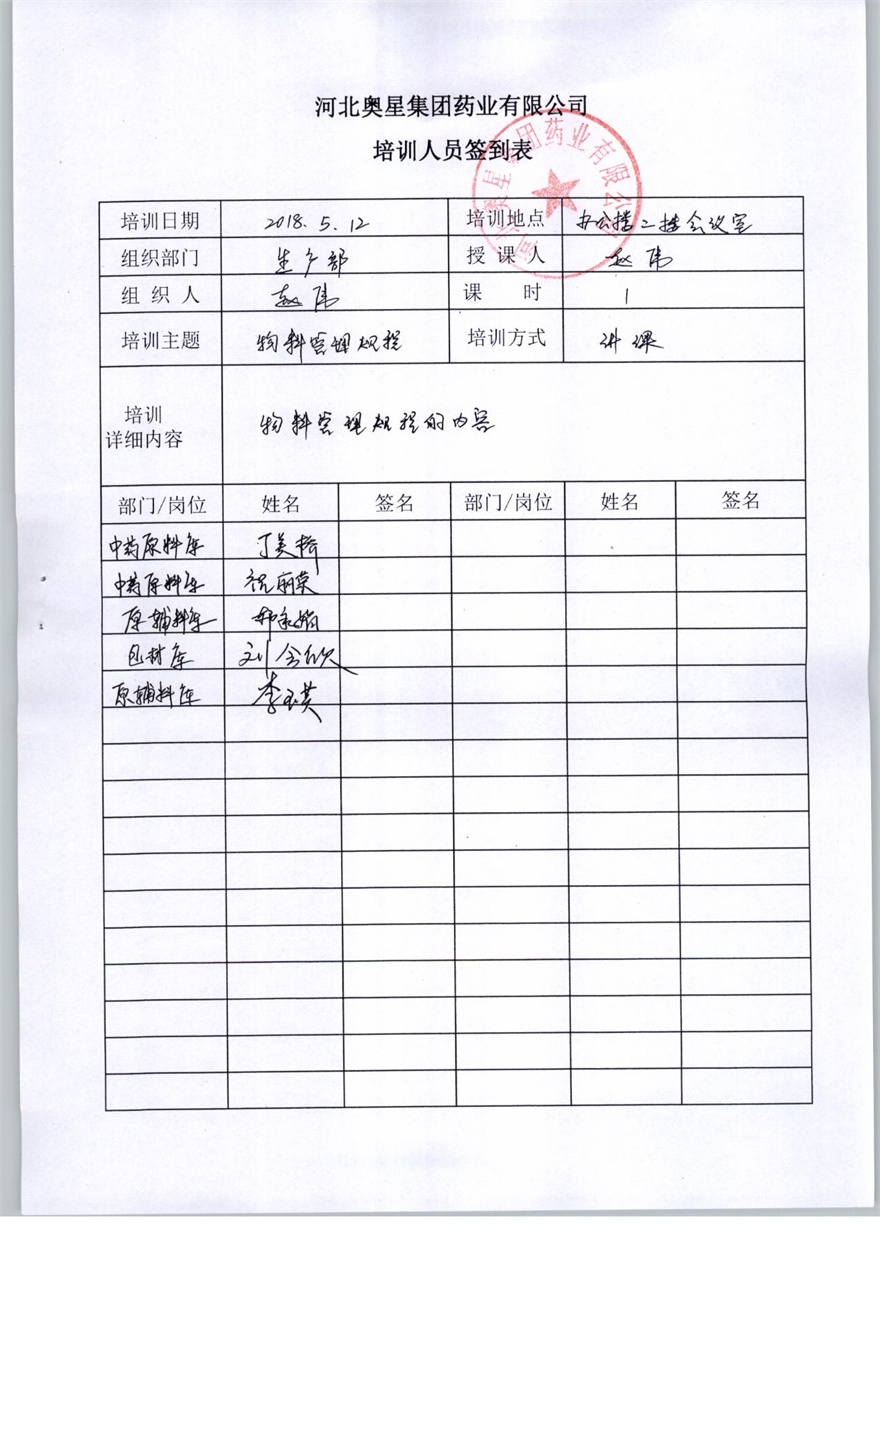 河北奥星集团药业有限公司
培训人员签到表
培训日期 2018.5.12 培训地点 办公楼二楼会议室
组织部门 生产部 授课人 赵伟
组织人 赵伟 课时 1
培训主题 物料管理规程 培训方式 讲课
培训
详细内容 物料管理规程的内容
部门/岗位 姓名 签名 部门/岗位 姓名 签名
中药原料库 丁美
中药原料库 祝丽
原辅料库
包材库 刘会欣
原辅料库 李玉英
奥星集团药业有限公司